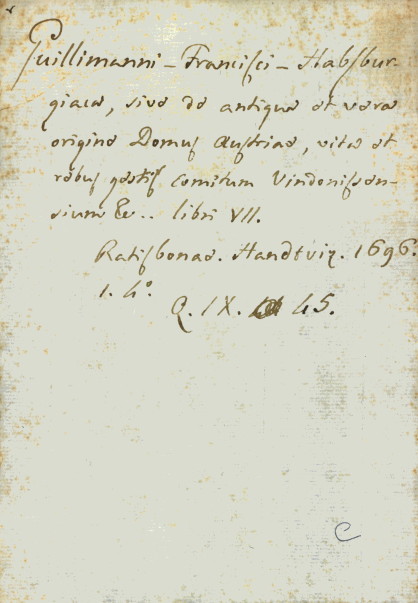 Guillimanni - Francisci - Habsbur-
giaca, sive de antiqua et vera
origine Domus Austriae, vita et
rebus gestis comitum Vindonissen-
sium &c.. libri VII.
Ratisbonae. Handtwig. 1696.
1. 4°.
Q. IX. 45.
C